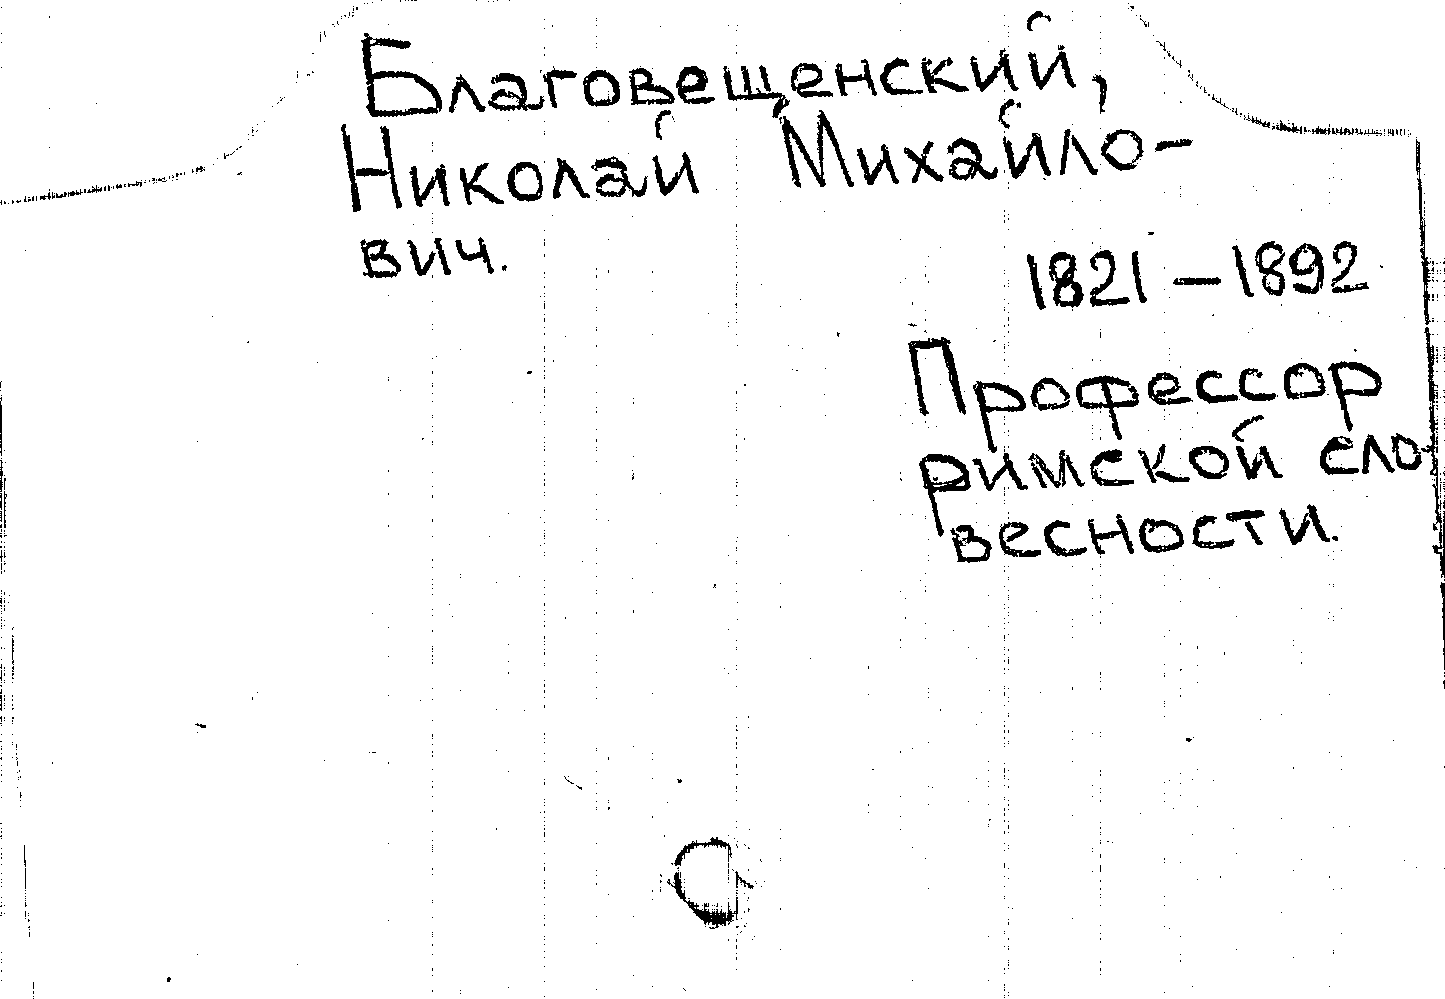 Благовещенский,
Николай Михайло-
вич.
1821 – 1892
Профессор
римской сло-
весности.